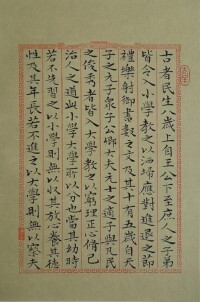 古者民生八歲上自王公下至庶人之子弟
皆令入小學教之以洒埽應對進退之節
禮樂射御書數之文及其十有五歲自天
子之元子衆子公卿大夫元士之適子與凡民
之俊秀者皆入大學教之以窮理正心脩己
治人之道此小學大學所以分也當其幼時
若不先習之以小學則無以收其放心養其德
性及其年長若不進之以大學則無以察夫